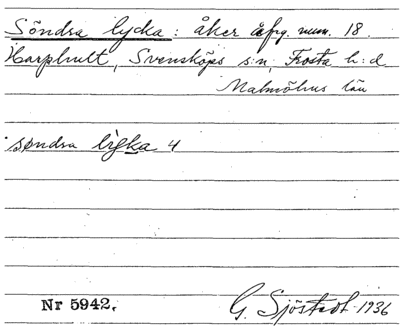 Söndra lycka: åker åfrg. num. 18.
Harphult, Svensköps s:n, Frosta h:d
Malmöhus län
søndra lyka 4
Nr 5942. G. Sjöstedt 1936